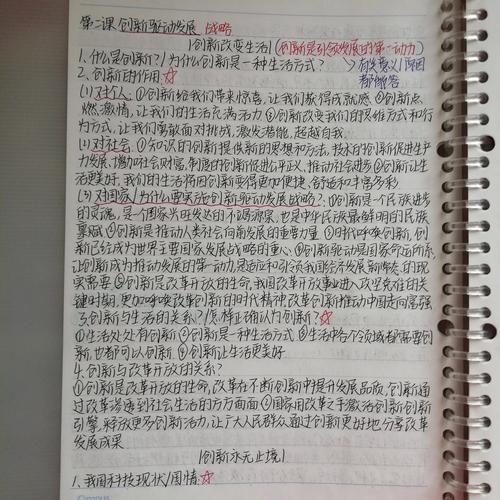 第二课 创新驱动发展 战略
|创新改变生活| (创新是引领发展的第一动力)
1.什么是创新?/为什么创新是一种生活方式? > 有关意义/原因
2.创新的作用☆ 都能答
(1)对个人:①创新给我们带来惊喜,让我们获得成就感②创新点
燃激情,让我们的生活充满活力③创新改变我们的思维方式和行
为方式,让我们勇敢面对挑战,激发潜能,超越自我.
(2)对社会①知识的创新提供新的思想和方法,技术的创新促进生产
力发展,增加社会财富,制度的创新促进公平正义,推动社会进步②创新让生
活更美好,我们的生活将因创新变得更加便捷、舒适和丰富多彩
(3)对国家/为什么要实施创新驱动发展战略?:①创新是一个民族进步
的灵魂,是一个国家兴旺发达的不竭源泉,也是中华民族最鲜明的民族
禀赋②创新是推动人类社会向前发展的重要力量③时代呼唤创新,创
新已经成为世界主要国家发展战略的重心④创新驱动是国家命运所系,
让创新成为推动发展的第一动力,是适应和引领我国经济发展新常态的现
实需要⑤创新是改革开放的生命,我国改革开放事业进入攻坚克难的关
键时期,更加呼唤改革创新的时代精神改革创新推动中国走向富强
3.创新与生活的关系?/怎样正确认为创新?☆
①生活处处有创新②创新是一种生活方式③生活中各个领域都需要创
新,也都可以创新④创新让生活更美好
4.创新与改革开放的关系?
①创新是改革开放的生命,改革在不断创新中提升发展品质,创新通
过改革渗透到社会生活的方方面面②国家用改革之手激活创新创新
引擎,释放更多创新活力,让广大人民群众通过创新更好地分享改革
发展成果
|创新永无止境|
1.我国科技现状/国情:☆
Campus